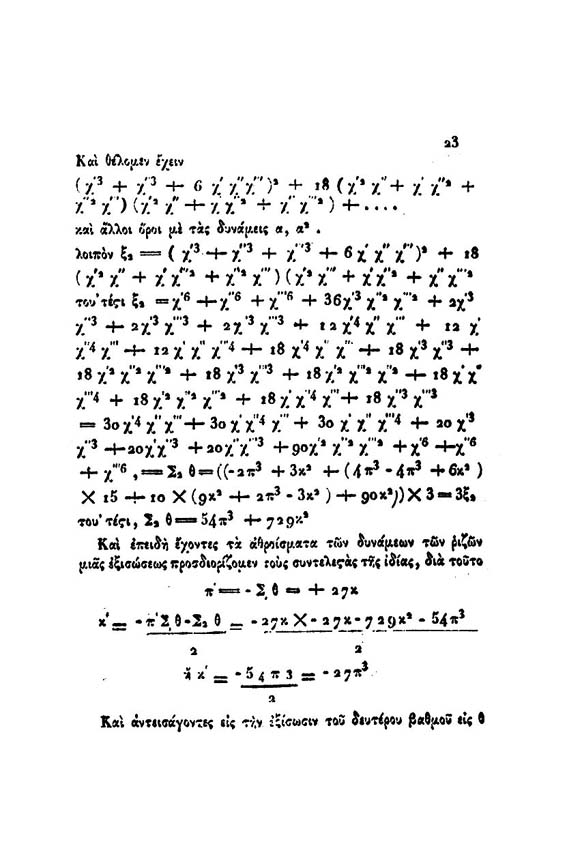 23
Καὶ θέλομεν ἔχειν
(χ′³ + χ″³ + 6 χ′ χ″ χ‴)² + 18 (χ′² χ″ + χ′ χ″² +
χ″² χ′) (χ′² χ″ + χ′ χ″² + χ″ χ‴²) + ....
καὶ ἄλλοι ὅροι μὲ τὰς δυνάμεις α, α² .
λοιπὸν ξ₂ = ( χ′³ + χ″³ + χ‴³ + 6 χ′ χ″ χ‴)² + 18
(χ′² χ″ + χ′ χ‴² + χ″² χ‴) (χ′² χ‴ + χ′ χ″² + χ″ χ‴²
του'τέςι ξ₂ = χ′⁶ + χ″⁶ + χ‴⁶ + 36χ′² χ″² χ‴² + 2χ′³
χ″³ + 2χ′³ χ‴³ + 2χ″³ χ‴³ + 12 χ′⁴ χ″ χ‴ + 12 χ′
χ″⁴ χ‴ + 12 χ′ χ″ χ‴⁴ + 18 χ′⁴ χ″ χ‴ + 18 χ′³ χ″³ +
18 χ′² χ″² χ‴² + 18 χ′³ χ‴³ + 18 χ′² χ″² χ‴² + 18 χ′ χ″
χ‴⁴ + 18 χ′² χ″² χ‴² + 18 χ′ χ″⁴ χ‴ + 18 χ″³ χ‴³
= 30 χ′⁴ χ″ χ‴ + 30 χ′ χ″⁴ χ‴ + 30 χ′ χ″ χ‴⁴ + 20 χ′³
χ″³ + 20χ′³ χ‴³ + 20χ″³ χ‴³ + 90χ′² χ″² χ‴² + χ′⁶ + χ″⁶
+ χ‴⁶ , = Σ₂ θ = ((-2π³ + 3κ² + (4π³ - 4π³ + 6κ² )
× 15 + 10 × (9κ² + 2π³ - 3κ² ) + 90κ²)) × 3 = 3ξ₂
του'τέςι, Σ₂ θ = 54π³ + 729κ²
Καὶ ἐπειδὴ ἔχοντες τὰ ἀθροίσματα τῶν δυνάμεων τῶν ῥιζῶν
μιᾶς ἐξισώσεως προσδιορίζομεν τοὺς συντελεςὰς τῆς ἰδίας, διὰ τοῦτο
π′ = - Σ, θ = + 27κ
κ′ = - π′ Σ, θ - Σ₂ θ = - 27κ × - 27κ - 729κ² - 54π³
2 2
ἤ κ′ = - 54 π 3 = - 27π³
2
Καὶ ἀντεισάγοντες εἰς τὴν ἐξίσωσιν τοῦ δευτέρου βαθμοῦ εἰς θ